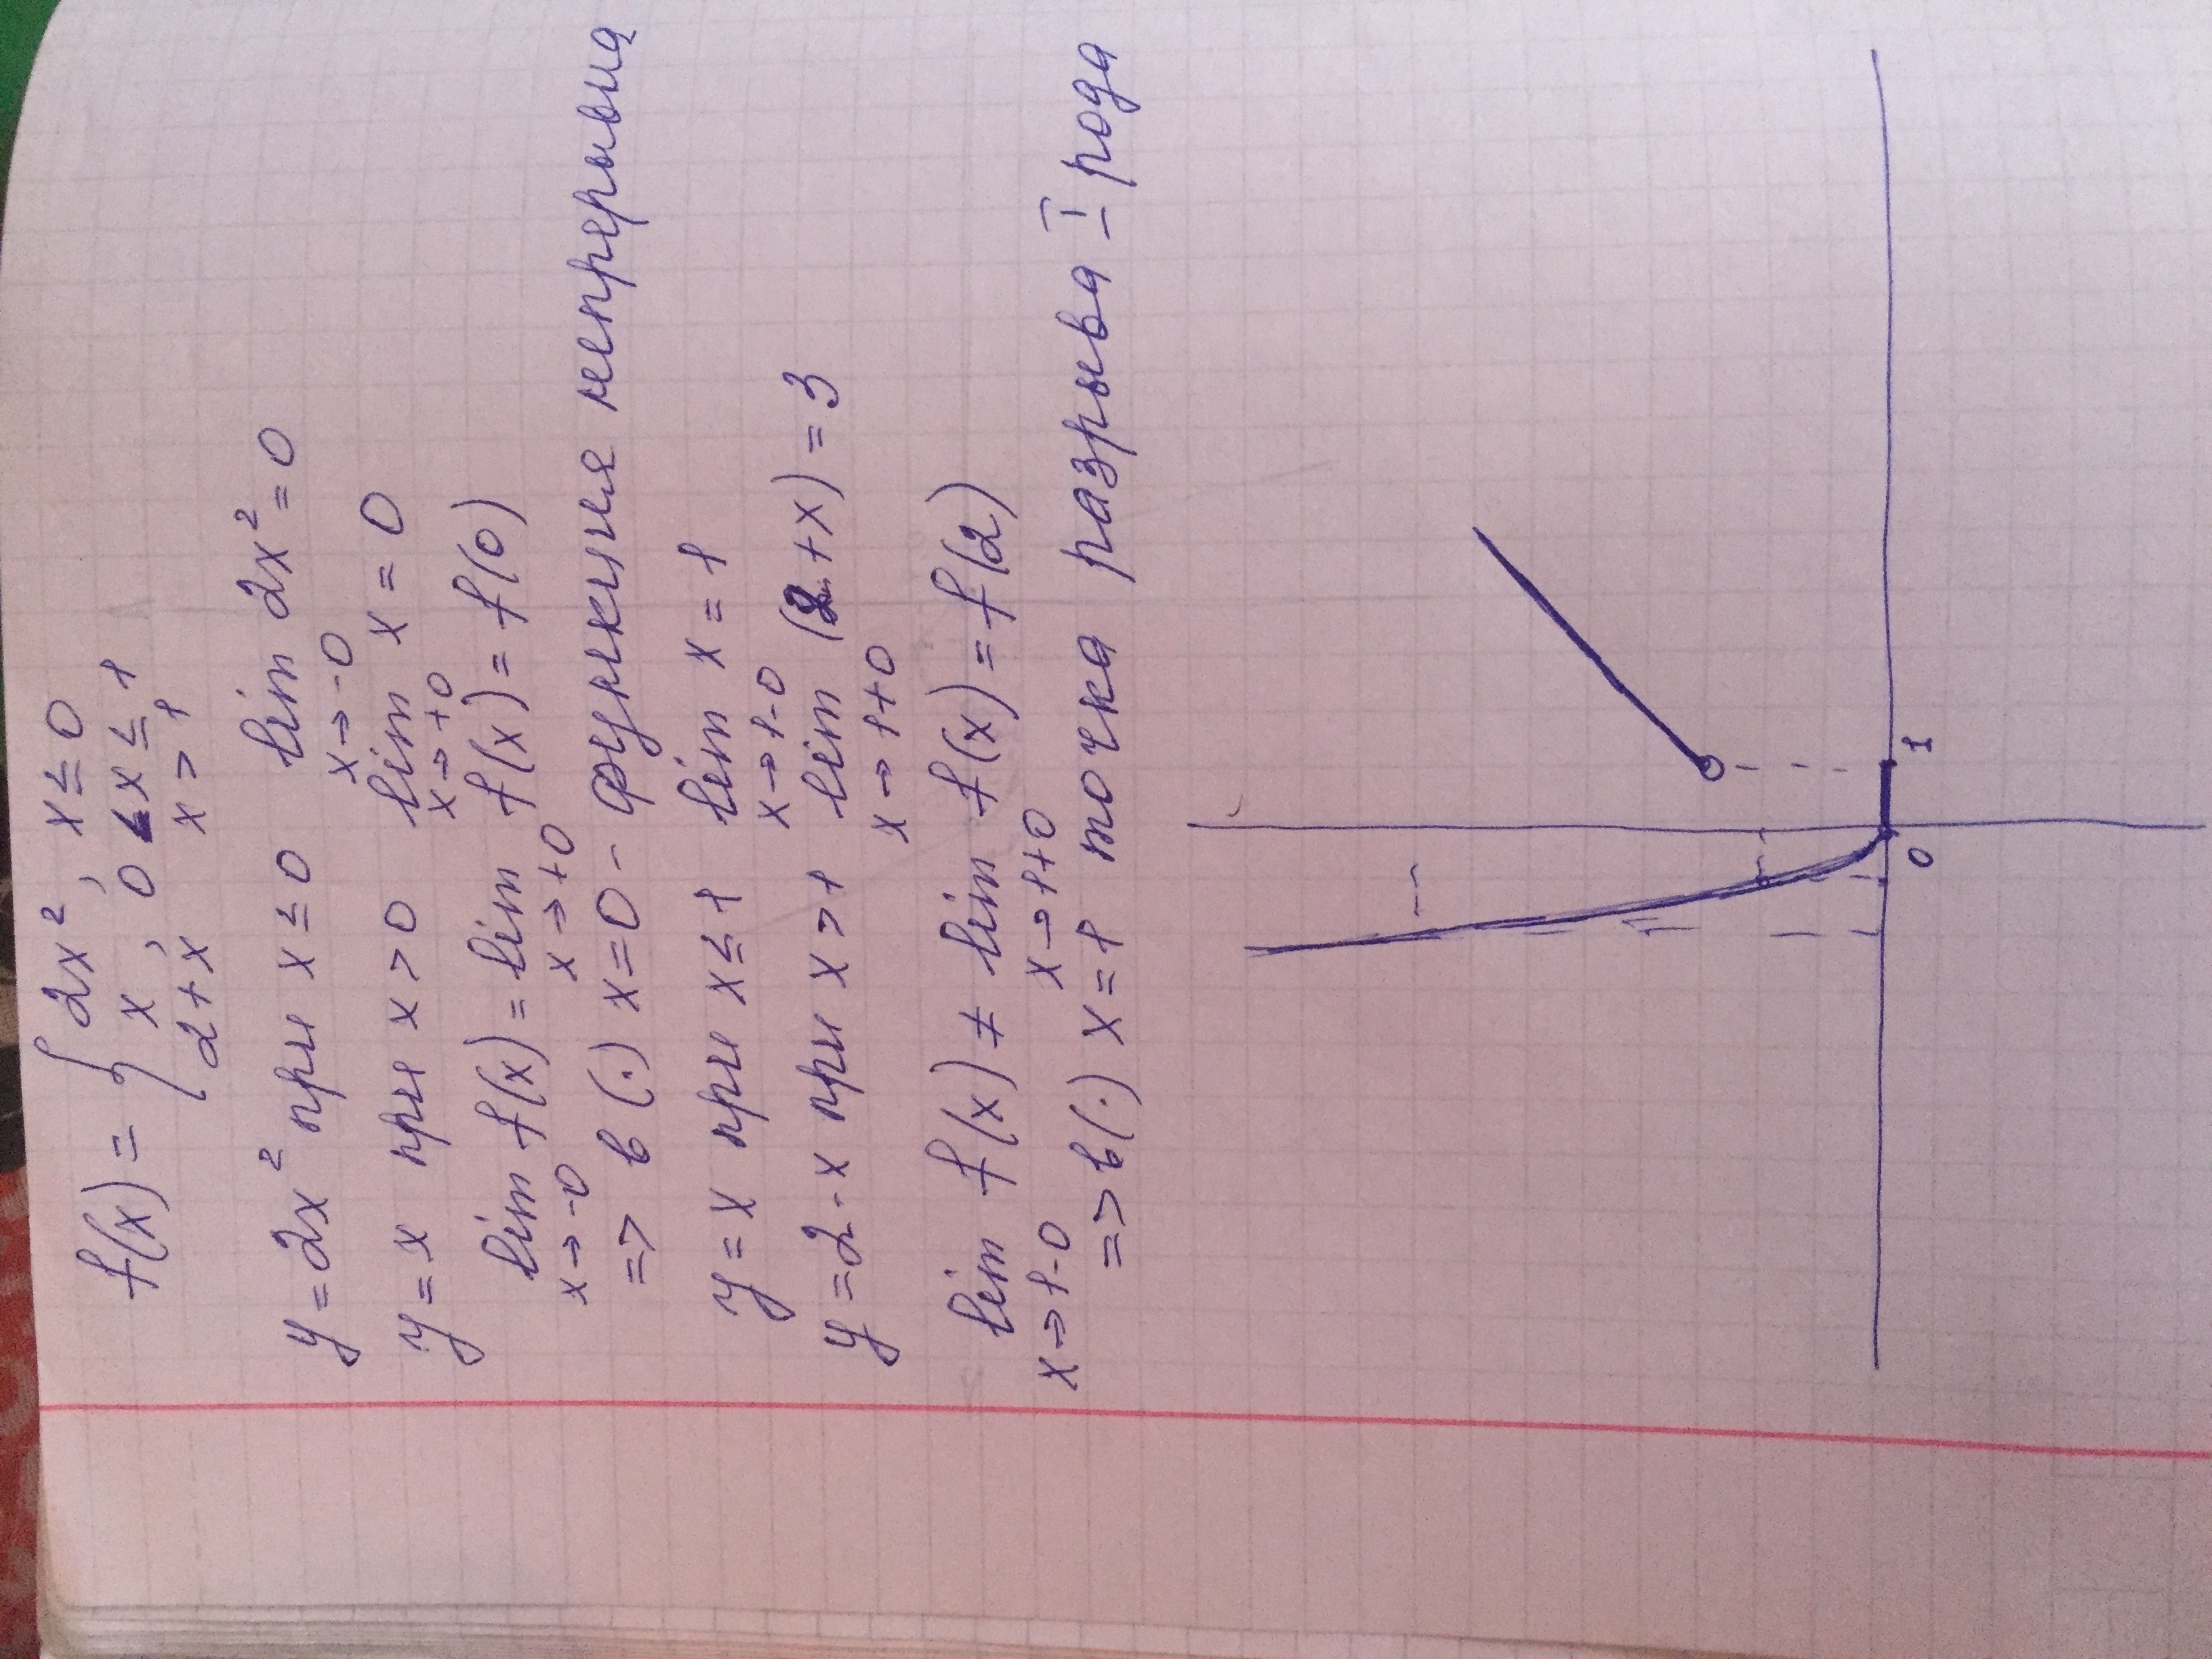 f(x) = { 2x², x ≤ 0
x, 0 < x ≤ 1
2+x x > 1
y = 2x² при x ≤ 0 lim 2x² = 0
x→-0
y = x при x > 0 lim x = 0
x→+0
lim f(x) = lim f(x) = f(0)
x→-0 x→+0
=> в (·) x=0 - функция непрерывна
y = x при x ≤ 1 lim x = 1
x→1-0
y = 2-x при x > 1 lim (2+x) = 3
x→1+0
lim f(x) ≠ lim f(x) = f(2)
x→1-0 x→1+0
=> в (·) x = 1 точка разрыва I рода
0 1